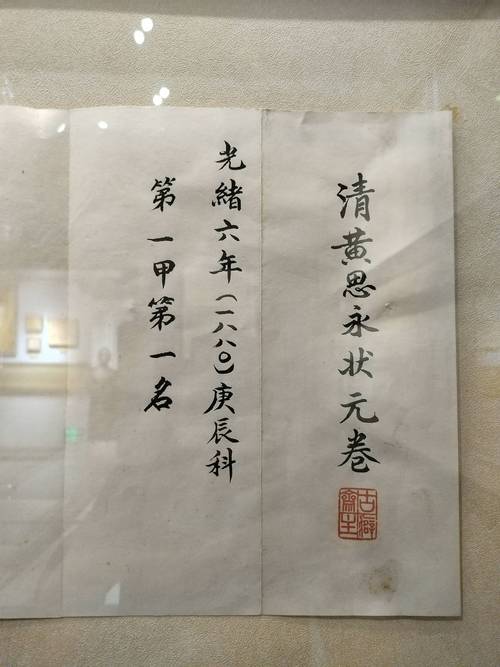 清黄思永状元卷
古癖斋主
光緒六年(一八八〇)庚辰科
第一甲第一名